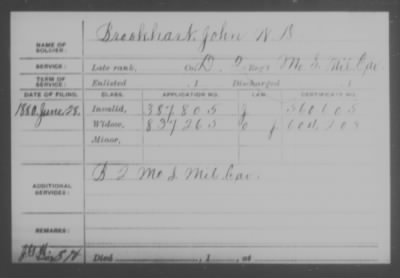 Brookhart, John N. B.
NAME OF SOLDIER:
SERVICE: Late rank, Co. D, 2 Reg't Mo. S. Mil Cav.
TERM OF SERVICE: Enlisted , 1 Discharged , 1
DATE OF FILING. CLASS. APPLICATION NO. LAW. CERTIFICATE NO.
1880 June 28. Invalid, 387805
Widow, 837263
Minor,
ADDITIONAL SERVICES: B 2 Mo S Mil Cav.
REMARKS:
Died , 1 , at